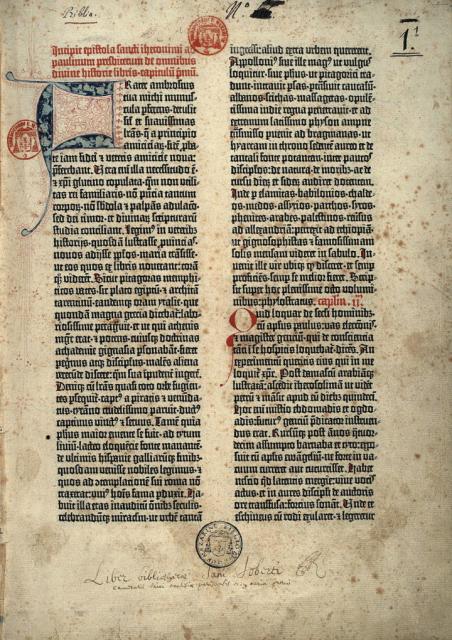 Biblia.
N°
1.
Incipit epistola sancti iheronimi ad
paulinum presbiterum de omnibus
divine historie libris. capitulū pmū.
Frater ambrosius
tua michi munus-
cula pferens. detulit
sil et suavissimas
lrās. q̄ a principio
amiciciaꝝ. fidē pba-
te iam fidei et veteris amicicie nova:
pferebant. Vera eni illa necessitudo ē.
et xpi glutino copulata. qm non utili-
tas rei familiaris. nō pntia tantum
corporꝝ. nō sbdola et palpās adulaco.
sed dei timor. et divinaꝝ scripturarū
studia conciliant. Legim⁹ in veteribꝫ
historijs. quosdā lustrasse puincias.
novos adijsse pplos. maria transisse.
ut eos quos ex libris noverant: corā
qꝫ viderēt. Sicut pitagoras memphi-
ticos vates. sic plato egiptū. et architā
tarentinū. eandemqꝫ oram ytalie. que
quondā magna grecia dicebat: labo-
riosissime peragravit. et ut qui athenis
mgr erat. et potens. cuiusqꝫ doctrinas
achademie gignasia psonabāt. fieret
peginus atqꝫ discipulus. malēs aliena
verecūde discere: qm sua īpudent ingere.
Deniqꝫ cū lrās quasi toto orbe fugien-
tes pseqtur. capt⁹ a piratis et venūda-
tus. tyrāno crudelissimo paruit. duct⁹
captivus vinct⁹ et servus. Tamē quia
phus maior emente se fuit. ad tytum
liviū. lacteo eloquētie fonte manantē.
de ultimis hispanie galliarūqꝫ finibꝫ.
quosdam venisse nobiles legimus.
quos ad cōtemplacionē sui roma nō
traxerat: uni⁹ hoīs fama pduxit. Ha-
buit illa etas inauditū oībꝫ seculis.
celebrandūqꝫ miraculū. ut urbē tantā
ingressi: aliud extra urbem quererent.
Apolloni⁹ sive ille mag⁹ ut vulgus
loquitur. sive phus ut pitagorici tra-
dunt. intravit psas. ptransivit caucasū.
albanos. scithas. massagetas. opulē-
tissima indie regna penetravit. et ad
extremum latissimo physon ampne
trāsmisso puenit ad bragmanas. ut
hyarcam in throno sedētē aureo et de
tantali fonte potantem. inter paucos
discipulos. de natura. de moribꝫ. ac de
cursu dierꝝ et siderꝝ audiret docentem.
Inde p elamitas. babilonios. chalde-
os. medos. assyrios. parthos. syros.
phenices. arabes. palestinos. reversus
ad alexandriā: perrexit ad ethiopiā.
ut gignosophistas et famosissimam
solis mensam videret in sabulo. In-
venit ille vir ubiqꝫ qd disceret. et semp
proficiēs. semp se melior fieret. Scrip-
sit super hoc plenissime octo volumi-
nibus: phylostratus. caplm. ij.
Quid loquar de seculi hominibꝫ:
cū aplus paulus: vas electōnis.
et magister gentium. qui de consciencia
tanti in se hospicis loquebat dicens. An
experimentū queritis eius qui in me
loquitur xpc. Post damascū arabiāqꝫ
lustratā: ascēdit iherosolimā ut vidēt
petrū et māsit apud eū diebꝫ quindecī.
Hoc eni misterio ebdomadis et ogdo-
adis: futur⁹ gentiū pdicator instruen-
dus erat. Rursūqꝫ post ānos quatuor-
decim assumpto barnaba et tyto: expo-
suit cū aplis evāgeliū. ne forte in va-
cuum curreret aut cucurrisset. Habet
nescio qd latentis energie: vive vocis
actus. et in aures discipli de auctoris
ore transfusa: forcius sonat. Unde et
eschineus cū rodi exularet. et legeretur
Liber bibliothecae Sancti Roberti